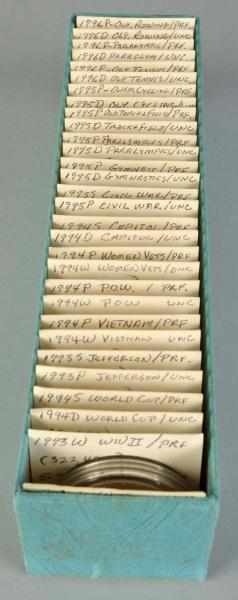 1996P-OLY. ROWING/PRF
1996D OLY. ROWING/UNC
1996P-PARALYMPICS/PRF
1996D PARALYMPICS/UNC
1996P-OLY TENNIS/PRF
1996D OLY TENNIS/UNC
1995P-OLY. CYCLING/PRF
1995D OLY. CYCLING
1995P FIELD/PRF
1995D TRACK+FIELD/UNC
1995P PARALYMPICS/PRF
1995D PARALYMPICS/UNC
1995P GYMNAST/PRF
1995D GYMNASTICS/UNC
1995S CIVIL WAR/PRF
1995P CIVIL WAR/UNC
1994S CAPITOL/PRF
1994D CAPITOL/UNC
1994P WOMEN VETS/PRF
1994W WOMEN VETS/UNC
1994P P.O.W. / PRF.
1994W POW UNC
1994P VIETNAM/PRF
1994W VIETNAM UNC
1993S JEFFERSON/PRF.
1993P JEFFERSON/UNC
1994S WORLD CUP/PRF
1994D WORLD CUP/UNC
1993W WWII/PRF
(322